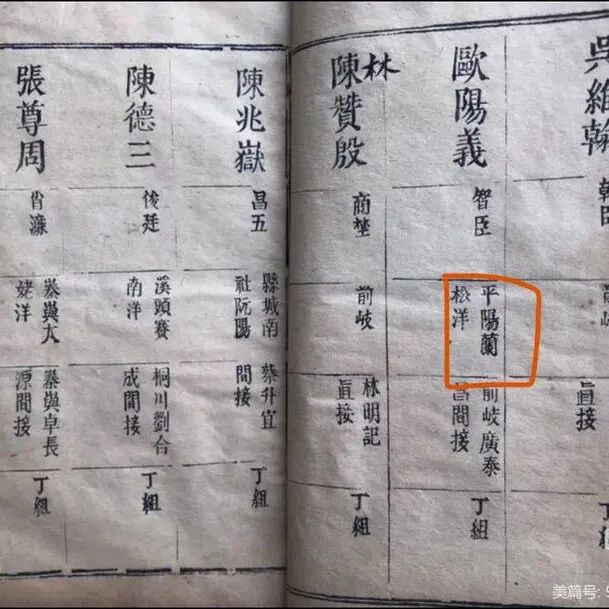 吳維翰
韓臣
直接
丁組
歐陽義
智臣
平陽蘭
松洋
前岐廣泰
昌間接
丁組
林
陳贊殷
商埜
前岐
林明記
直接
丁組
陳兆嶽
昌五
縣城南
社阮陽
蔡升宜
間接
丁組
陳德三
俊廷
溪頭賽
南洋
桐川劉合
成間接
丁組
張尊周
省濂
巽與大
姥洋
巽與卓長
源間接
丁組
美篇号: